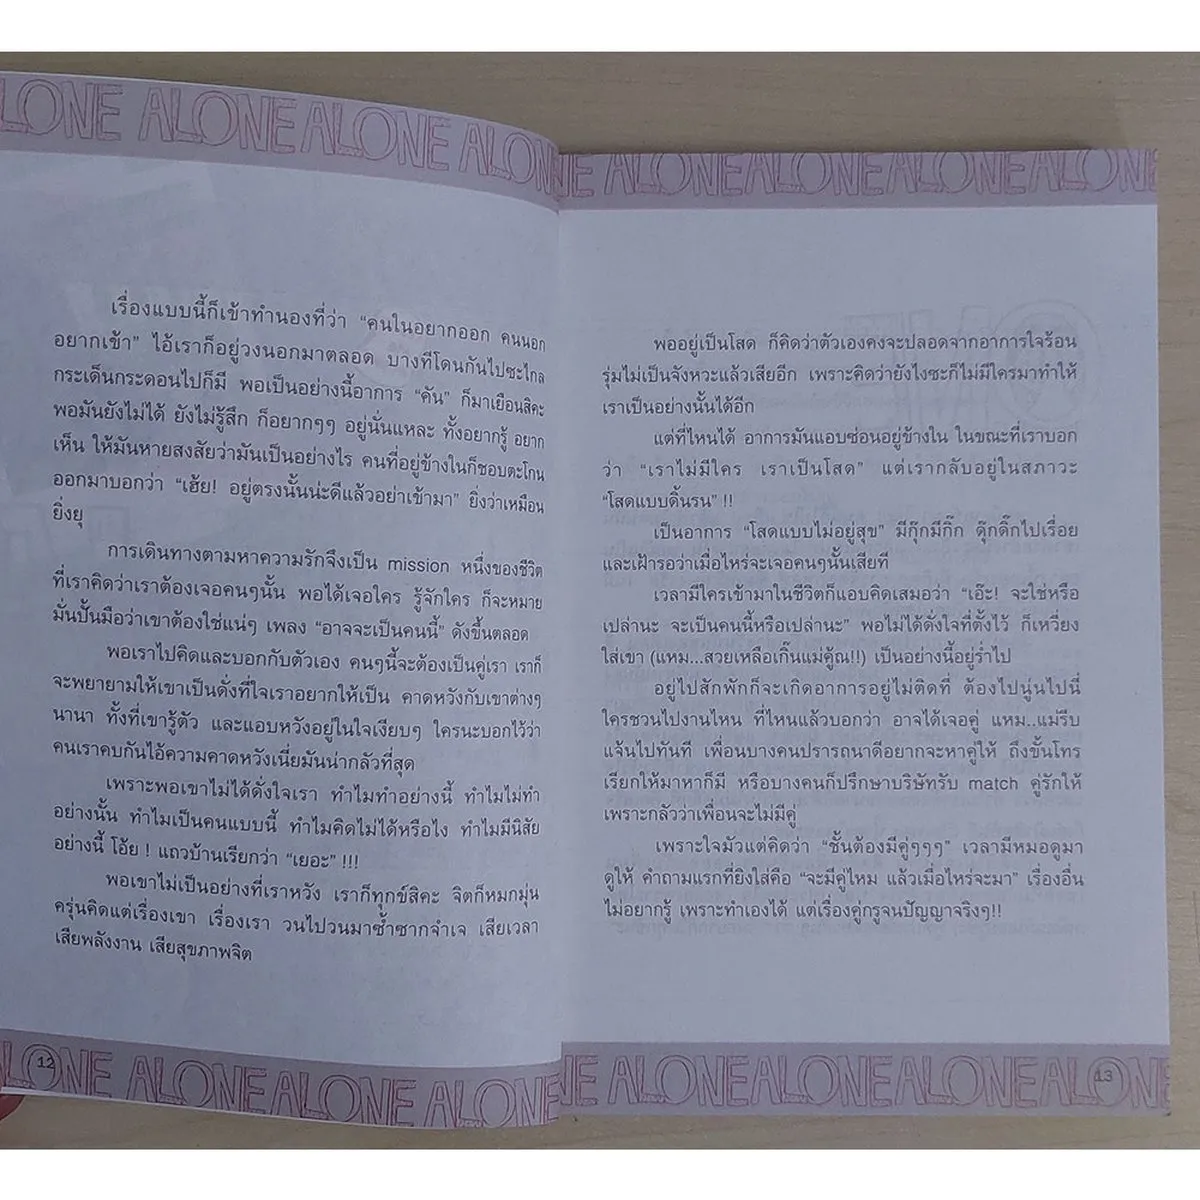 LONE ALONE ALONE ALON
เรื่องแบบนี้ก็เข้าทำนองที่ว่า “คนในอยากออก คนนอก
อยากเข้า” ไอ้เราก็อยู่วงนอกมาตลอด บางทีโดนกันไปซะไกล
กระเด็นกระดอนไปก็มี พอเป็นอย่างนี้อาการ “คัน” ก็มาเยือนสิคะ
พอมันยังไม่ได้ ยังไม่รู้สึก ก็อยากๆๆ อยู่นั่นแหละ ทั้งอยากรู้ อยาก
เห็น ให้มันหายสงสัยว่ามันเป็นอย่างไร คนที่อยู่ข้างในก็ชอบตะโกน
ออกมาบอกว่า “เฮ้ย! อยู่ตรงนั้นน่ะดีแล้วอย่าเข้ามา” ยิ่งว่าเหมือน
ยิ่งยุ
การเดินทางตามหาความรักจึงเป็น mission หนึ่งของชีวิต
ที่เราคิดว่าเราต้องเจอคนๆนั้น พอได้เจอใคร รู้จักใคร ก็จะหมาย
มั่นปั้นมือว่าเขาต้องใช่แน่ๆ เพลง “อาจจะเป็นคนนี้” ดังขึ้นตลอด
พอเราไปคิดและบอกกับตัวเอง คนๆนี้จะต้องเป็นคู่เรา เราก็
จะพยายามให้เขาเป็นดั่งที่ใจเราอยากให้เป็น คาดหวังกับเขาต่างๆ
นานา ทั้งที่เขารู้ตัว และแอบหวังอยู่ในใจเงียบๆ ใครนะบอกไว้ว่า
คนเราคบกันไอ้ความคาดหวังเนี่ยมันน่ากลัวที่สุด
เพราะพอเขาไม่ได้ดั่งใจเรา ทำไมทำอย่างนี้ ทำไมไม่ทำ
อย่างนั้น ทำไมเป็นคนแบบนี้ ทำไมคิดไม่ได้หรือไง ทำไมมีนิสัย
อย่างนี้ โอ้ย ! แถวบ้านเรียกว่า “เยอะ” !!!
พอเขาไม่เป็นอย่างที่เราหวัง เราก็ทุกข์สิคะ จิตก็หมกมุ่น
ครุ่นคิดแต่เรื่องเขา เรื่องเรา วนไปวนมาซ้ำซากจำเจ เสียเวลา
เสียพลังงาน เสียสุขภาพจิต
12
LONE ALONE ALONE ALONE
NE ALONE ALONE ALONE ALONE
พออยู่เป็นโสด ก็คิดว่าตัวเองคงจะปลอดจากอาการใจร้อน
รุ่มไม่เป็นจังหวะแล้วเสียอีก เพราะคิดว่ายังไงซะก็ไม่มีใครมาทำให้
เราเป็นอย่างนั้นได้อีก
แต่ที่ไหนได้ อาการมันแอบซ่อนอยู่ข้างใน ในขณะที่เราบอก
ว่า “เราไม่มีใคร เราเป็นโสด” แต่เรากลับอยู่ในสภาวะ
“โสดแบบดิ้นรน” !!
เป็นอาการ “โสดแบบไม่อยู่สุข” มีกุ๊กมีกิ๊ก ดุ๊กดิ๊กไปเรื่อย
และเฝ้ารอว่าเมื่อไหร่จะเจอคนๆนั้นเสียที
เวลามีใครเข้ามาในชีวิตก็แอบคิดเสมอว่า “เอ๊ะ! จะใช่หรือ
เปล่านะ จะเป็นคนนี้หรือเปล่านะ” พอไม่ได้ดั่งใจที่ตั้งไว้ ก็เหวี่ยง
ใส่เขา (แหม...สวยเหลือเกิ๊นแม่คู้ณ!!) เป็นอย่างนี้อยู่ร่ำไป
อยู่ไปสักพักก็จะเกิดอาการอยู่ไม่ติดที่ ต้องไปนู่นไปนี่
ใครชวนไปงานไหน ที่ไหนแล้วบอกว่า อาจได้เจอคู่ แหม..แม่รีบ
แจ้นไปทันที เพื่อนบางคนปรารถนาดีอยากจะหาคู่ให้ ถึงขั้นโทร
เรียกให้มาหาก็มี หรือบางคนก็ปรึกษาบริษัทรับ match คู่รักให้
เพราะกลัวว่าเพื่อนจะไม่มีคู่
เพราะใจมัวแต่คิดว่า “ชั้นต้องมีคู่ๆๆๆ” เวลามีหมอดูมา
ดูให้ คำถามแรกที่ยิงใส่คือ “จะมีคู่ไหม แล้วเมื่อไหร่จะมา” เรื่องอื่น
ไม่อยากรู้ เพราะทำเองได้ แต่เรื่องคู่กรูจนปัญญาจริงๆ!!
13
NE ALONE ALONE ALONE ALONE